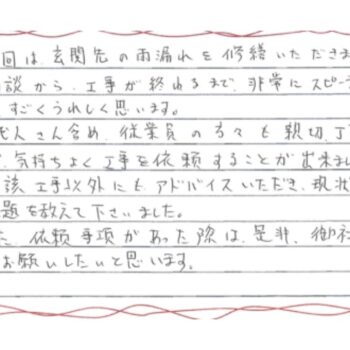 回は、玄関先の雨漏れを修繕いただきま
談から、工事が終わるまで、非常にスピー
すごくうれしく思います。
人さん含め、従業員の方々も親切、丁
気持ちよく工事を依頼することが出来まし
該工事以外にも、アドバイスいただき、現状
題を教えて下さいました。
た、依頼事項があった際は、是非、御社
お願いしたいと思います。